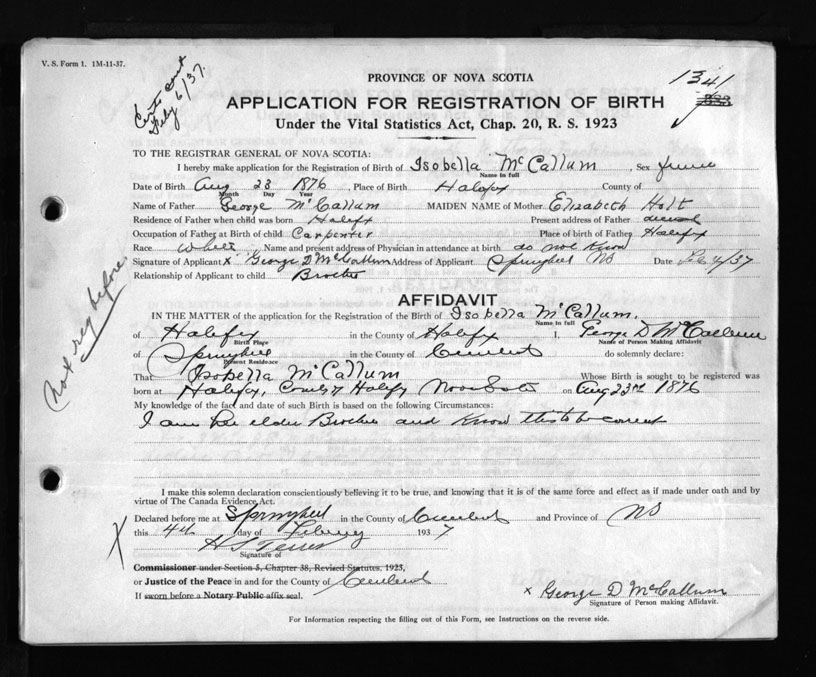 V. S. Form 1. 1M-11-37.
Feby 6/37
PROVINCE OF NOVA SCOTIA
1341
APPLICATION FOR REGISTRATION OF BIRTH
Under the Vital Statistics Act, Chap. 20, R. S. 1923
TO THE REGISTRAR GENERAL OF NOVA SCOTIA:
I hereby make application for the Registration of Birth of Isobella McCallum, Sex
Name in full
Date of Birth Aug 23 1876, Place of Birth Halifx County of
Month Day Year
Name of Father George McCallum MAIDEN NAME of Mother Elizabeth Holt
Residence of Father when child was born Halifx Present address of Father
Occupation of Father at Birth of child Carpenter Place of birth of Father Halifx
Race White Name and present address of Physician in attendance at birth do not know
Signature of Applicant x George D McCallum Address of Applicant Springhill NS Date Feb 4/37
Relationship of Applicant to child Brother
Not reg before
AFFIDAVIT
IN THE MATTER of the application for the Registration of the Birth of Isobella McCallum.
Name in full
of Halifx in the County of Halifx I, George D McCallum
Birth Place Name of Person Making Affidavit
of Springhill in the County of Cumberland do solemnly declare:
Present Residence
That Isobella McCallum Whose Birth is sought to be registered was
born at Halifax, County Halifx Nova Scotia on Aug 23rd 1876
My knowledge of the fact and date of such Birth is based on the following Circumstances:
I am her elder Brother and know this to be correct
I make this solemn declaration conscientiously believing it to be true, and knowing that it is of the same force and effect as if made under oath and by
virtue of The Canada Evidence Act.
Declared before me at Springhill in the County of Cumberland and Province of NS
this 4th day of Febuary 1937
Signature of
Commissioner under Section 5, Chapter 38, Revised Statutes, 1923,
or Justice of the Peace in and for the County of Cumberland
If sworn before a Notary Public affix seal.
x George D McCallum
Signature of Person making Affidavit.
For Information respecting the filling out of this Form, see Instructions on the reverse side.